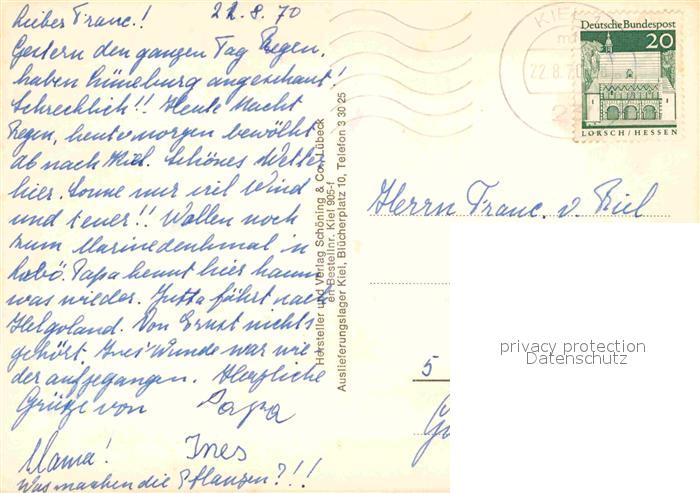 Lieber Franc.! 22.8.70
Gestern den ganzen Tag Regen,
haben Lüneburg angeschaut!
Schrecklich!! Heute Nacht
Regen, heute morgen bewölkt
ab nach Kiel. Schönes Wetter
hier. Sonne nur viel Wind
und teuer!! Wollen noch
zum Marinedenkmal in
Labö. Papa kennt hier kaum
was wieder. Jutta fährt nach
Helgoland. Von Ernst nichts
gehört. Ines' Wunde war wie
der aufgegangen. Herzliche
Grüße von Papa
Mama! Ines
Was machen die Pflanzen?!!
Hersteller und Verlag Schöning & Co., Lübeck
Bestellnr. Kiel 905-f
Auslieferungslager Kiel, Blücherplatz 10, Telefon 3 30 25
KIEL 1
22.8.70
Deutsche Bundespost
20
LORSCH/HESSEN
Herrn Franc. v. Riel
5
privacy protection
Datenschutz